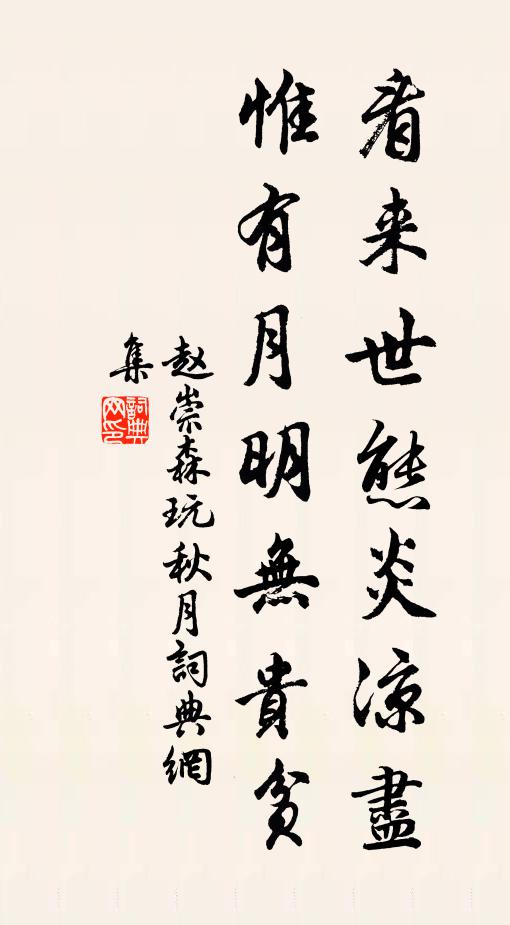 看来世熊炎凉盡
惟有月明無貴貧
赵崇森玩秋月詞典網
集
詞典
网印